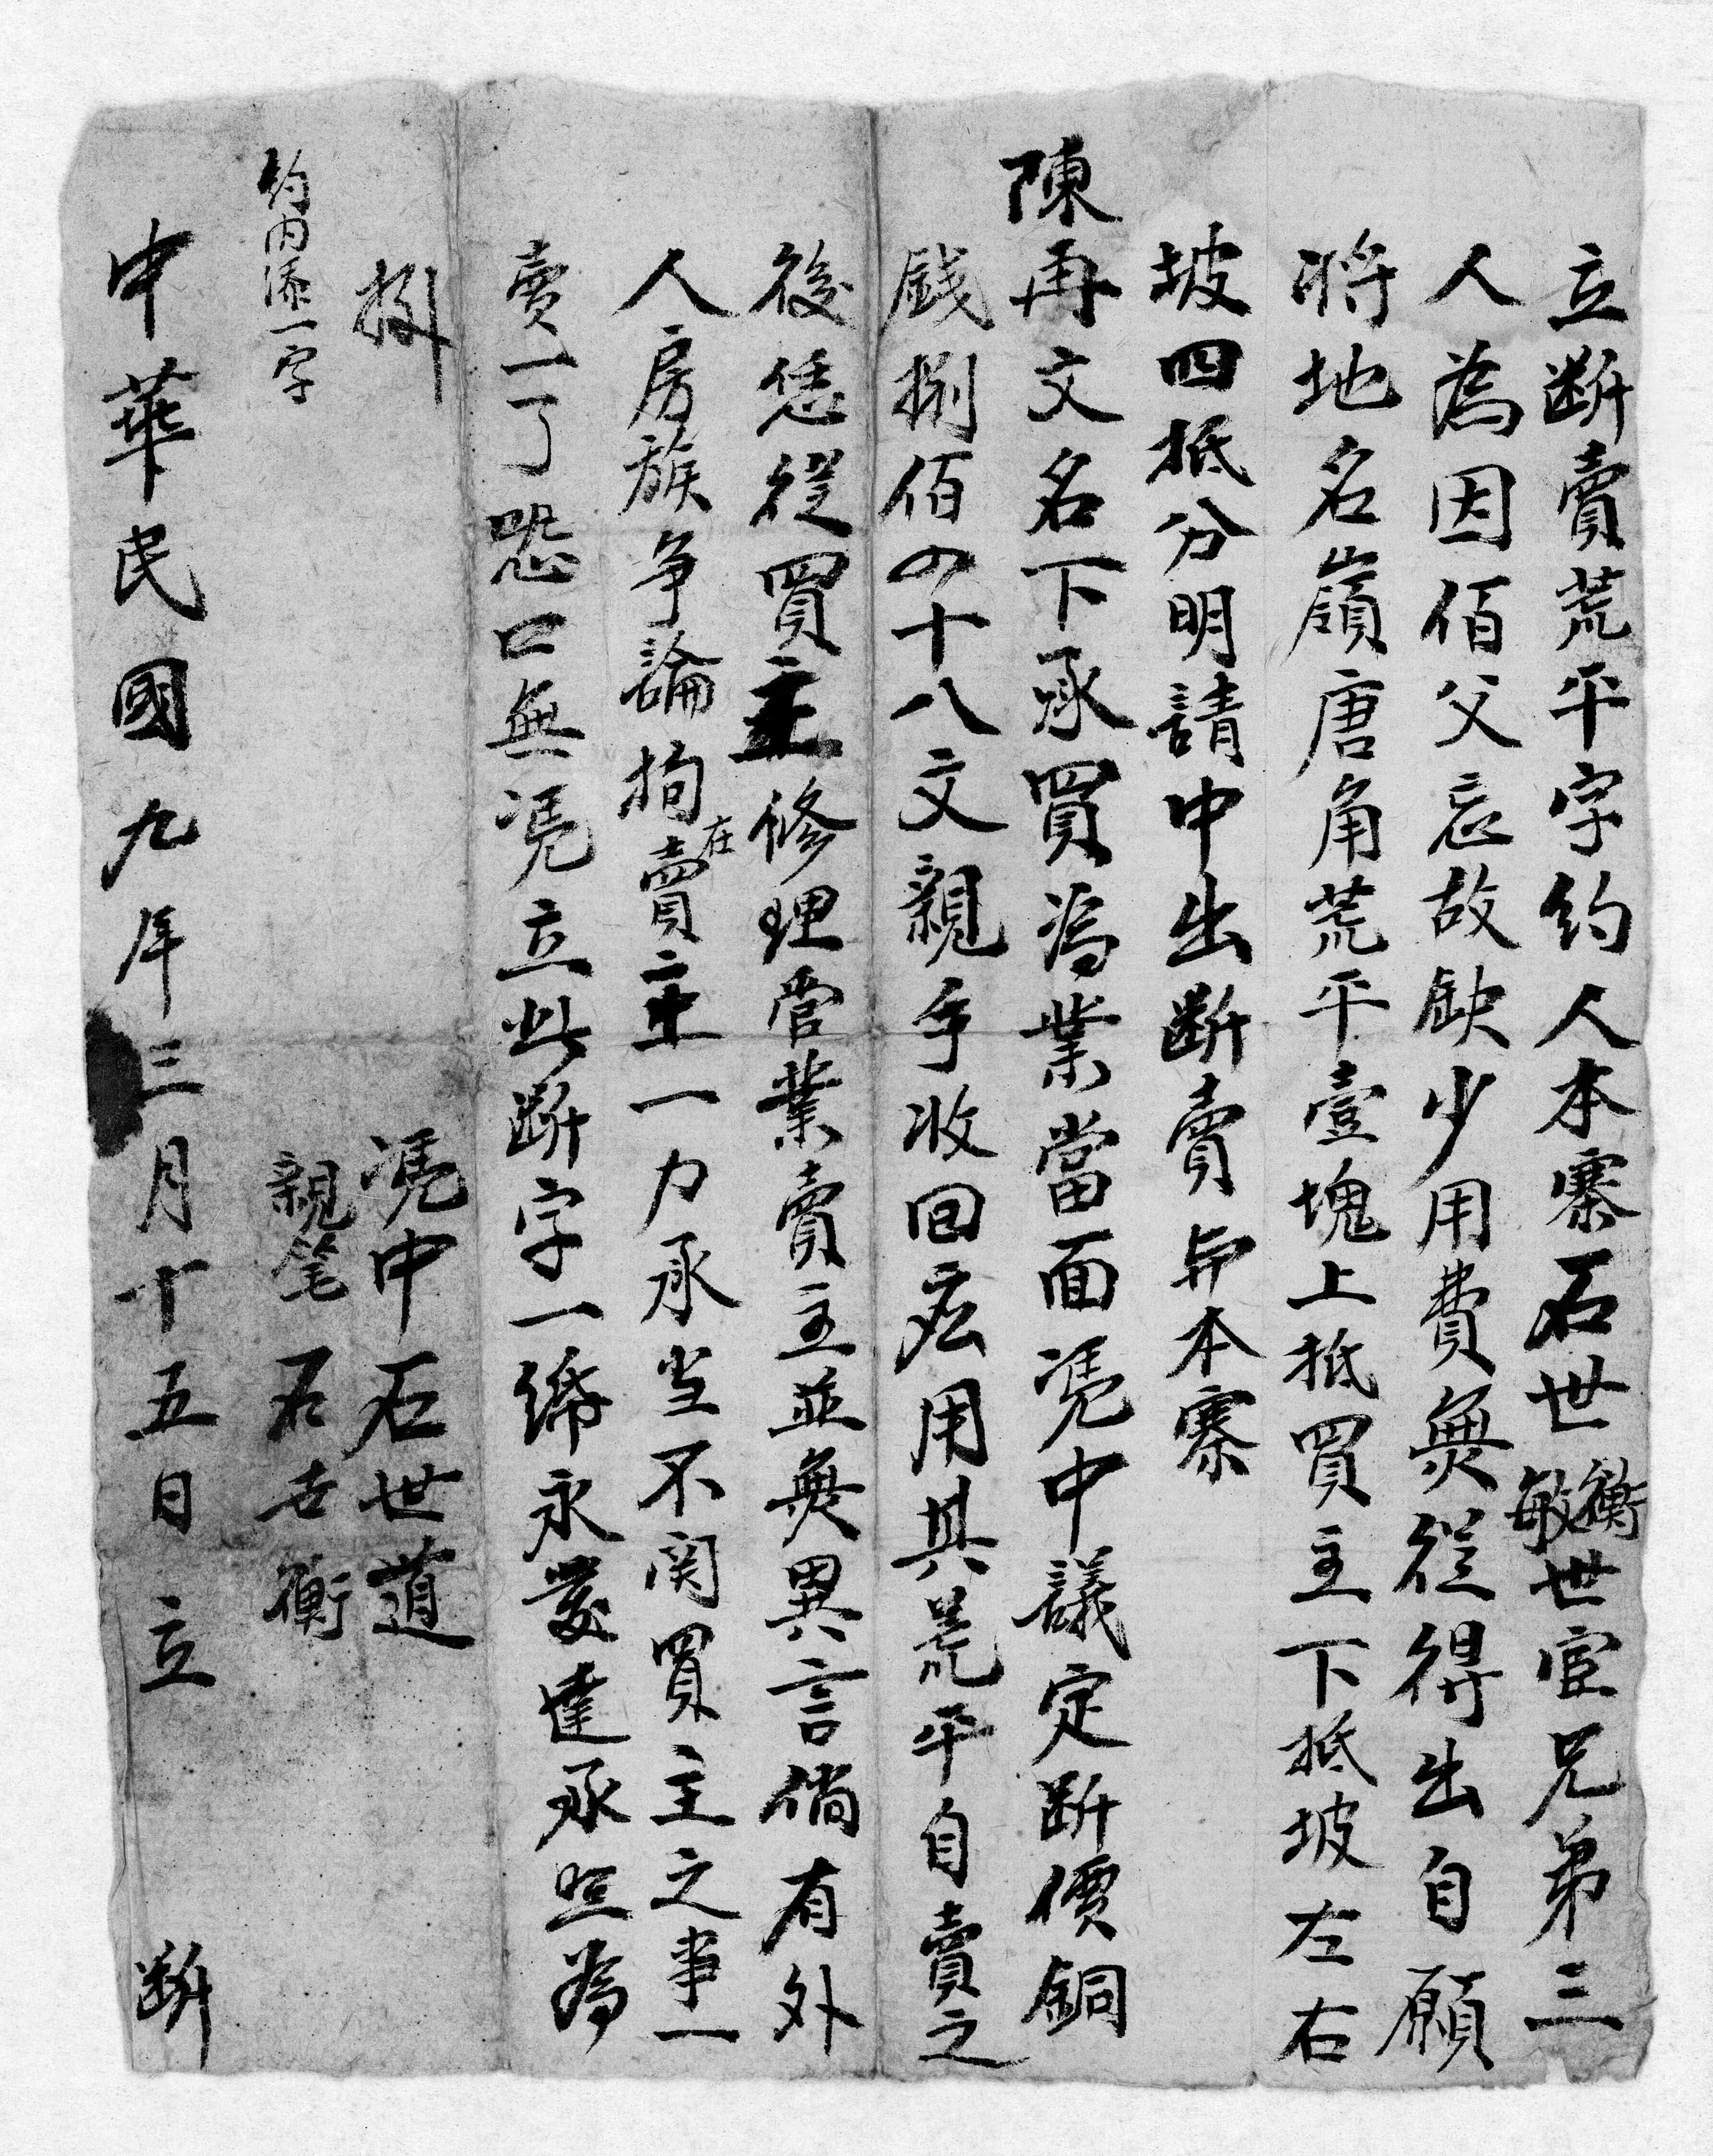 立断賣荒平字約人本寨石世衡敏世官兄弟三
人為因佰父忘故缺少用費無從得出自願
將地名嶺唐角荒平壹塊上抵買主下抵坡左右
坡四抵分明請中出断賣與本寨
陳再文名下承買為業當面凴中議定断價銅
銭捌佰四十八文親手收回應用其荒平自賣之
後恁從買主修理管業賣主並無異言倘有外
人房族争論拘在賣主一力承当不関買主之事一
賣一了恐口無凴立此断字一紙永發達承照為
據
凴中石世道
約内添一字
親筆石世衡
中華民國九年三月十五日立 断